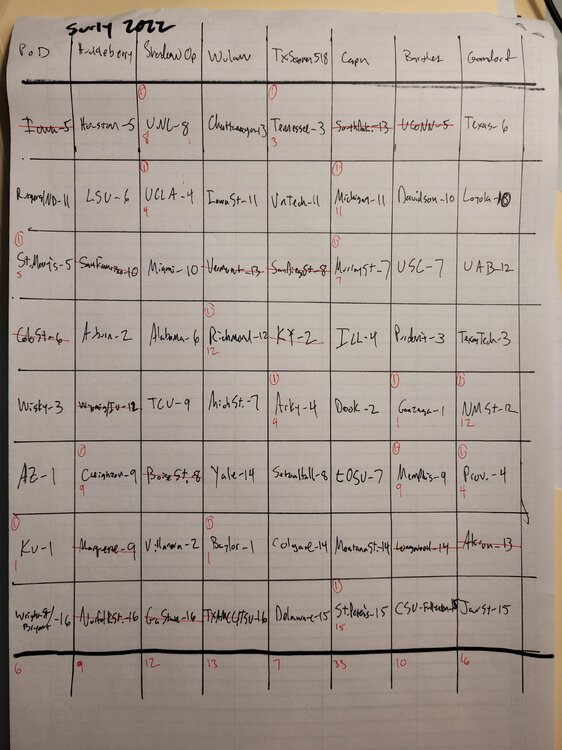 Surly 2022
PoD Huckleberry ShadowOp Wulaw TxStorm518 Capn Brothes Gandorf
① ①
Iowa-5 Houston-5 UNC-8 Chattanooga-13 Tennessee-3 SouthDak.-13 UConn-5 Texas-6
8 3
① ①
Rutgers/ND-11 LSU-6 UCLA-4 Iowa St-11 VaTech-11 Michigan-11 Davidson-10 Loyola-10
4 11
① ①
St.Marys-5 SanFrancisco-10 Miami-10 Vermont-13 SanDiegoSt-8 MurraySt-7 USC-7 UAB-12
5 7
①
ColoSt-6 Auburn-2 Alabama-6 Richmond-12 KY-2 ILL-4 Purdue-3 TexasTech-3
12
① ① ①
Wisky-3 Wyoming/IU-12 TCU-9 MichSt.-7 Arky-4 Dook-2 Gonzaga-1 NMSt-12
4 1 12
① ① ①
AZ-1 Creighton-9 BoiseSt.-8 Yale-14 SetonHall-8 tOSU-7 Memphis-9 Prov.-4
9 9 4
① ①
KU-1 Marquette-9 Villanova-2 Baylor-1 Colgate-14 MontanaSt.-14 Longwood-14 Akron-13
1 1
①
Wright St/Bryant-16 NorfolkSt.-16 GaState-16 TXAMCC/TSU-16 Delaware-15 St.Peters-15 CSU-Fullerton-15 JaxSt-15
15
6 9 12 13 7 33 10 16